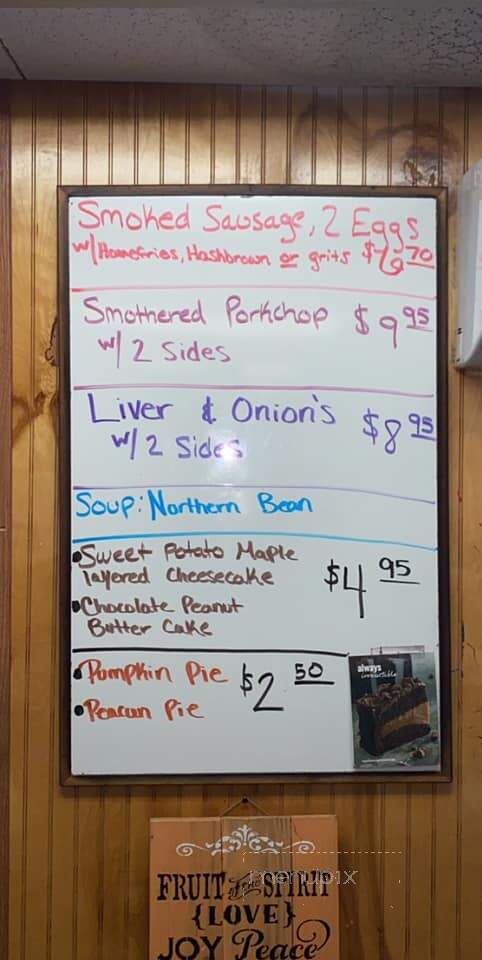 Smoked Sausage, 2 Eggs
w/ Homefries, Hashbrown or grits $ 70
Smothered Porkchop $9 95
w/ 2 Sides
Liver & Onion's $8 95
w/ 2 Sides
Soup: Northern Bean
• Sweet Potato Maple
layered Cheesecake $4 95
• Chocolate Peanut
Butter Cake
• Pumpkin Pie $2 50
• Peacan Pie
always
irresistible
menupix
FRUIT of the SPIRIT
{LOVE}
JOY Peace